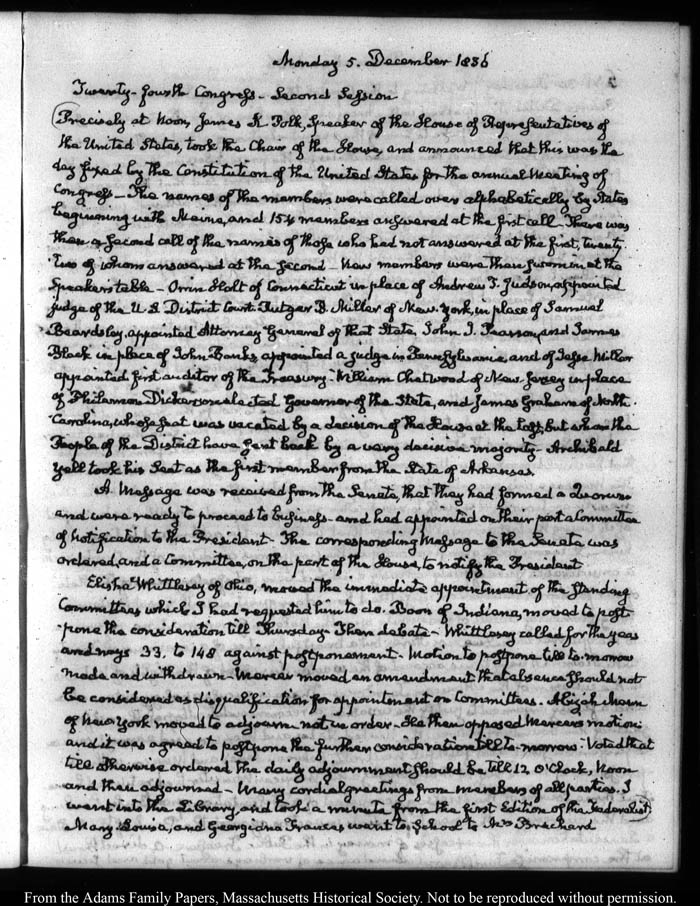 Monday 5. December 1836
Twenty-fourth Congress - Second Session
Precisely at Noon, James K Polk, Speaker of the House of Representatives of
the United States, took the Chair of the House, and announced that this was the
day fixed by the Constitution of the United States for the annual Meeting of
Congress - The names of the members were called over alphabetically by States
beginning with Maine, and 154 members answered at the first call. There was
then a second call of the names of those who had not answered at the first, twenty
two of whom answered at the second - New members were then sworn in at the
Speakers table - Orrin Holt of Connecticut in place of Andrew T. Judson, appointed
judge of the U.S. District Court. Rutger B. Miller of New-York, in place of Samuel
Beardsley, appointed Attorney General of that State. John J. Pearson, and James
Black in place of John Banks, appointed a judge in Pennsylvania, and of Jesse Miller
appointed first auditor of the Treasury - William Chetwood of New Jersey in place
of Philemon Dickerson elected Governor of the State, and James Graham of North-
Carolina, whose seat was vacated by a decision of the House at the last, but whom the
People of the District have sent back by a very decisive majority - Archibald
Yell took his Seat as the first member from the State of Arkansas
A Message was received from the Senate, that they had formed a Quorum
and were ready to proceed to business - and had appointed on their part a Committee
of Notification to the President - The corresponding Message to the Senate was
ordered, and a Committee, on the part of the House, to notify the President
Elisha Whittlesey of Ohio, moved the immediate appointment of the Standing
Committees which I had requested him to do. Boon of Indiana, moved to post-
pone the consideration till Thursday - Then debate - Whittlesey called for the yeas
and nays 33. to 148 against postponement - Motion to postpone till to-morrow
made and withdrawn - Mercer moved an amendment that absence should not
be considered as disqualification for appointment on Committees. Abijah Mann
of New York moved to adjourn not in order - He then opposed Mercer's motion
and it was agreed to postpone the further consideration till to-morrow. Voted that
till otherwise ordered the daily adjournment should be till 12 O'Clock, Noon
and then adjourned - Many cordial greetings from members of all parties. I
went into the Library, and took a minute from the first Edition of the Federalist.
Mary Louisa, and Georgiana Frances went to School to Mrs
From the Adams Family Papers, Massachusetts Historical Society. Not to be reproduced without permission.